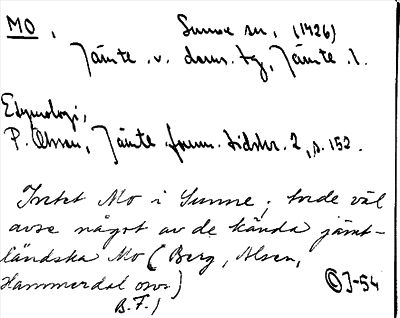 MO, Sunne sn, (1426)
Jämte. v. dom. tg, Jämte. 1.
Etymologi,
P. Olsson, Jämte. forn. tidskr. 2, s. 152.
Intet Mo i Sunne, torde väl
avse något av de kända jämt-
ländska Mo (Berg, Alsen,
Hammerdal osv)
B.F.)
J-54